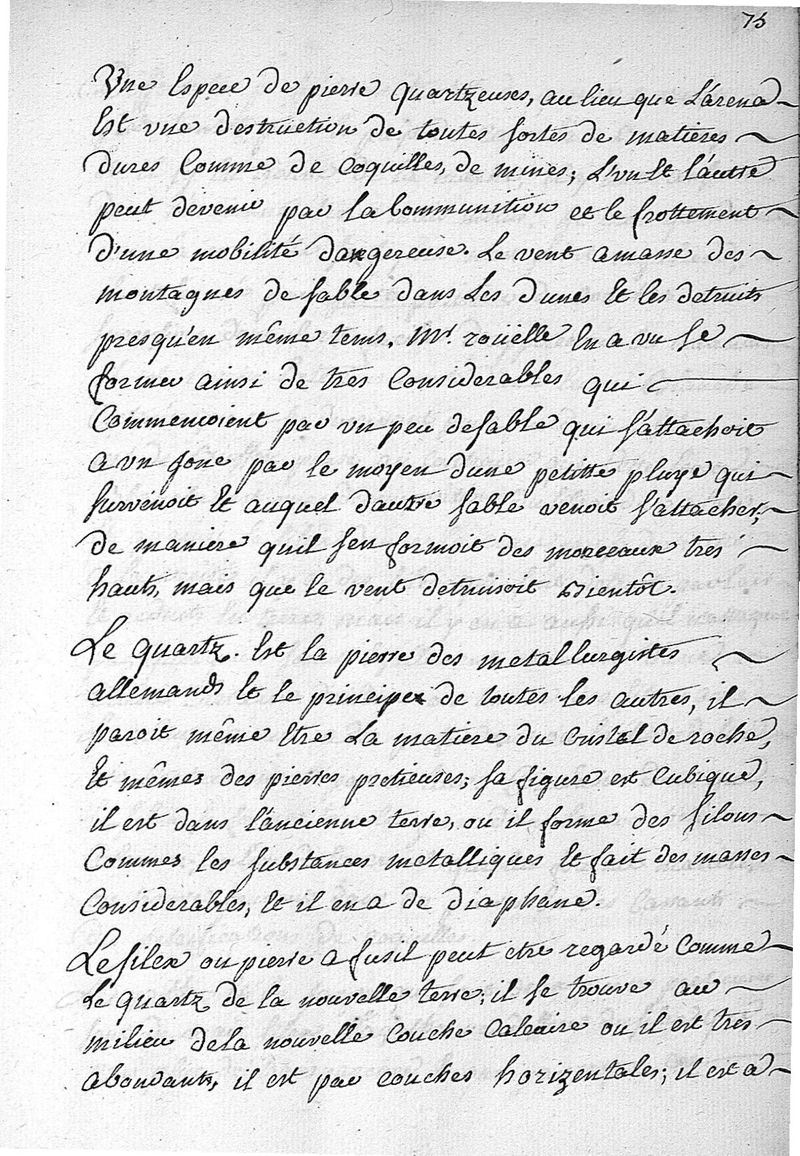 75
Une Espece de pierre quartzeuses, au lieu que L'arena
Est vne destruction de toutes sortes de matieres
dures Comme de Coquilles, de mines; L'vn Et l'autre
peut devenir par la Communition et le frottement
d'une mobilité dangereuse. Le vent amasse des
montagnes de sable dans Les Dunes Et les detruits
presqu'en même tems. Mr. roüelle En a vu se
former ainsi de tres Considerables qui
Commencoient par vn peu de sable qui s'attachoit
a vn jonc par le moyen d'une petitte pluye qui
survenoit Et auquel d'autre sable venoit s'attacher,
de maniere qu'il s'en formoit des morceaux tres
hauts, mais que le vent detruisoit Bientôt.
Le quartz. Est la pierre des metallurgistes
allemands Et le principe de toutes les autres, il
paroit même Etre La matiere du Cristal de roche,
Et mêmes des pierres pretieuses; sa figure est Cubique,
il est dans l'ancienne terre, ou il forme des filons
Commes les substances metalliques Et fait des masses
Considerables, Et il en a de diaphane.
Le silex ou pierre a fusil peut etre regardé Comme
Le quartz de la nouvelle terre; il se trouve au
milieu de la nouvelle Couche Calcaire ou il est très
abondants, il est par couches horizentales; il est a